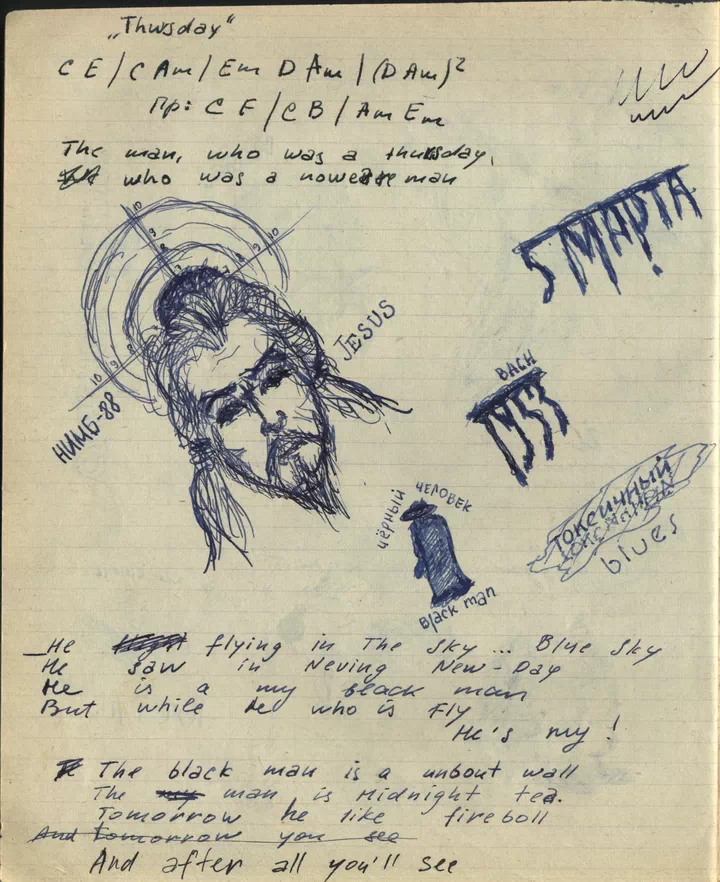 „Thursday“
C E / C Am / Em D Am / (D Am)²
Пр: C F / C B / Am Em
The man, who was a thursday,
who was a nowerse man
10 9 9 10
10 9
5 МАРТА
JESUS
НИМБ-88
BACH
1953
ЧЁРНЫЙ ЧЕЛОВЕК
Black man
ТОКСИЧНЫЙ
blues
He flying in The sky ... Blue sky
He saw in Neving New-Day
He is a my black man
But while he who is Fly
He's my !
The black man is a unbout wall
The my man is Midnight tea.
Tomorrow he like fireboll
And tomorrow you see
And after all you'll see